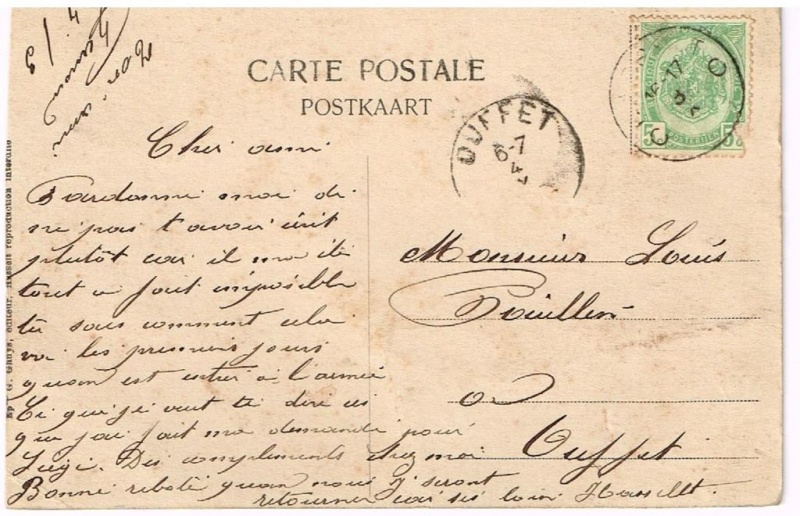 CARTE POSTALE
POSTKAART
OUFFET
6-7
5 POSTERIJEN 5
Cher ami
Pardonne moi de
ne pas t'avoir écrit
plutôt car il ma été
tout a fait impossible
tu sais comment cela
va les premiers jours
quon est entré a l'armée
Ce que je veut te dire
que jai fait ma demande pour
Liège. Des compliments chez moi
Bonne quon nous
retourner car loin Hasselt.
Monsieur Louis
a
Ouffet
Ep G. Ghuys, éditeur, Hasselt reproduction interdite